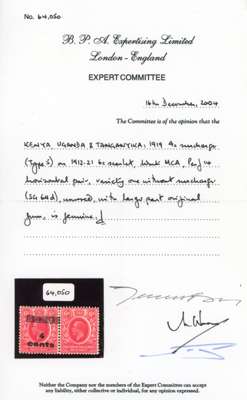 No. 64,050
B. P. A. Expertising Limited
London - England
EXPERT COMMITTEE
16th December, 2004
The Committee is of the opinion that the
KENYA, UGANDA & TANGANYIKA: 1919 4c surcharge
(Type 5) on 1912-21 6c scarlet, Wmk MCA, Perf 14
horizontal pair, variety one without surcharge
(SG 64d), unused, with large part original
gum, is genuine.
64,050
4
cents
Neither the Company nor the members of the Expert Committee can accept
any liability, either collective or individual, for any opinion expressed.